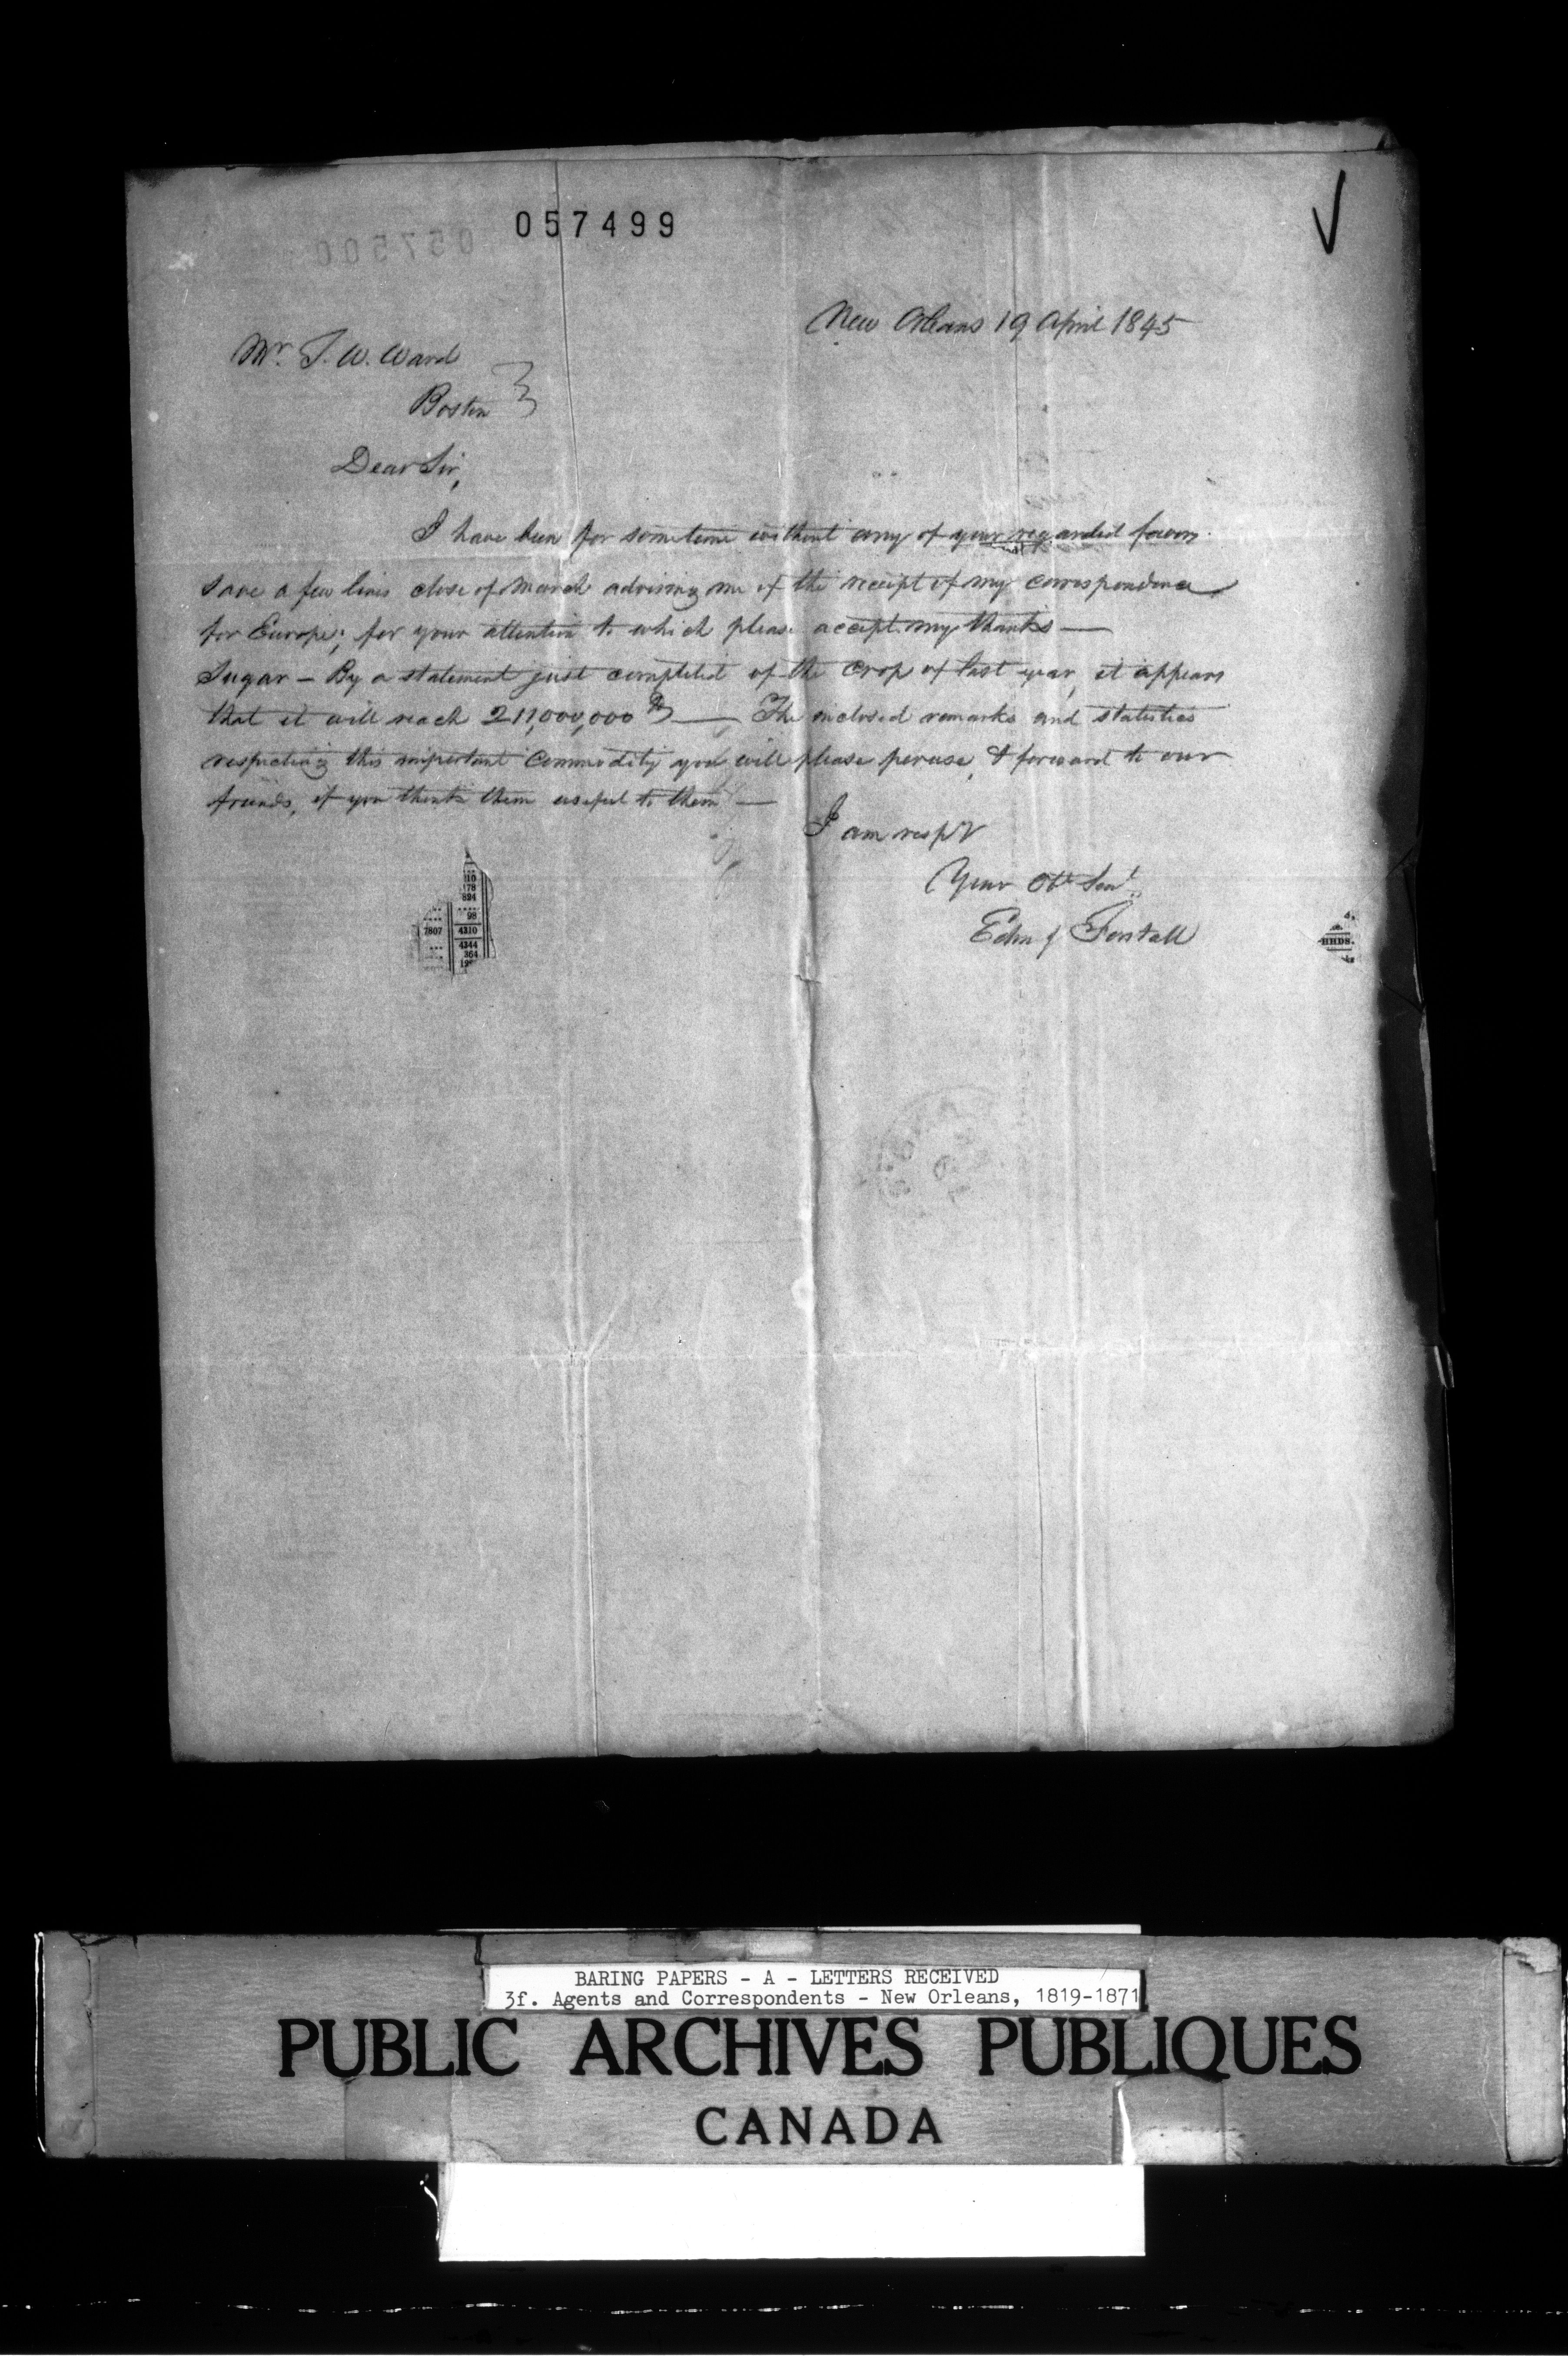 057499
New Orleans 19 April 1845
Mr. T. W. Ward
Boston
Dear Sir,
I have been for sometime without any of your regarded favors
save a few lines close of March advising me of the receipt of my correspondence
for Europe; for your attention to which please accept my thanks —
Sugar — By a statement just completed of the Crop of last year, it appears
that it will reach 211,000,000 lbs — The inclosed remarks and statistics
respecting this important Commodity you will please peruse, & forward to our
friends, if you think them useful to them —
I am respy
Your Obt Servt
Edm J Forstall
110
178
894
98
7807 4310
4344
364
HHDS.
BARING PAPERS - A - LETTERS RECEIVED
3f. Agents and Correspondents - New Orleans, 1819-1871
PUBLIC ARCHIVES PUBLIQUES
CANADA